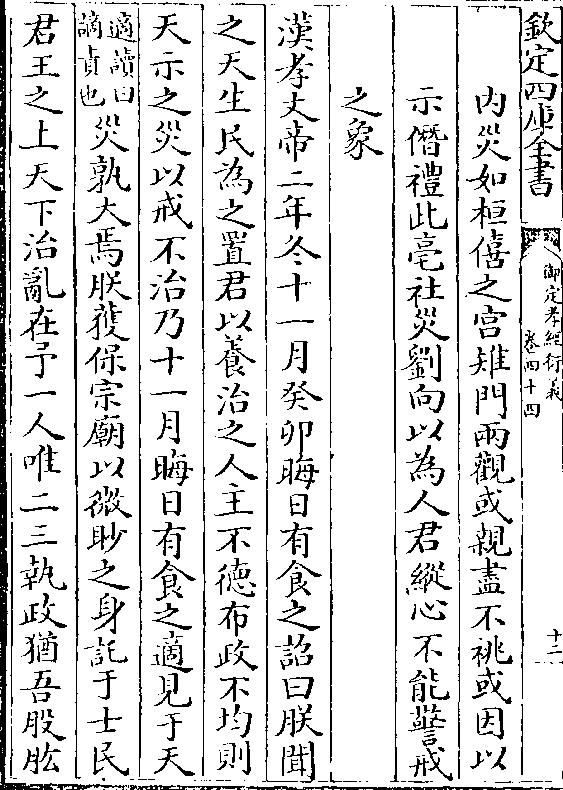 欽定四庫全書
御定孝經衍義
卷四十四
十二
內災如桓僖之宫雉門兩觀或親盡不祧或因以
示僭禮此亳社災劉向以為人君縱心不能警戒
之象
漢孝文帝二年冬十一月癸卯晦日有食之詔曰朕聞
之天生民為之置君以養治之人主不德布政不均則
天示之災以戒不治乃十一月晦日有食之適見于天
適讀曰
謫責也
災孰大焉朕獲保宗廟以微眇之身託于士民
君王之上天下治亂在予一人唯二三執政猶吾股肱